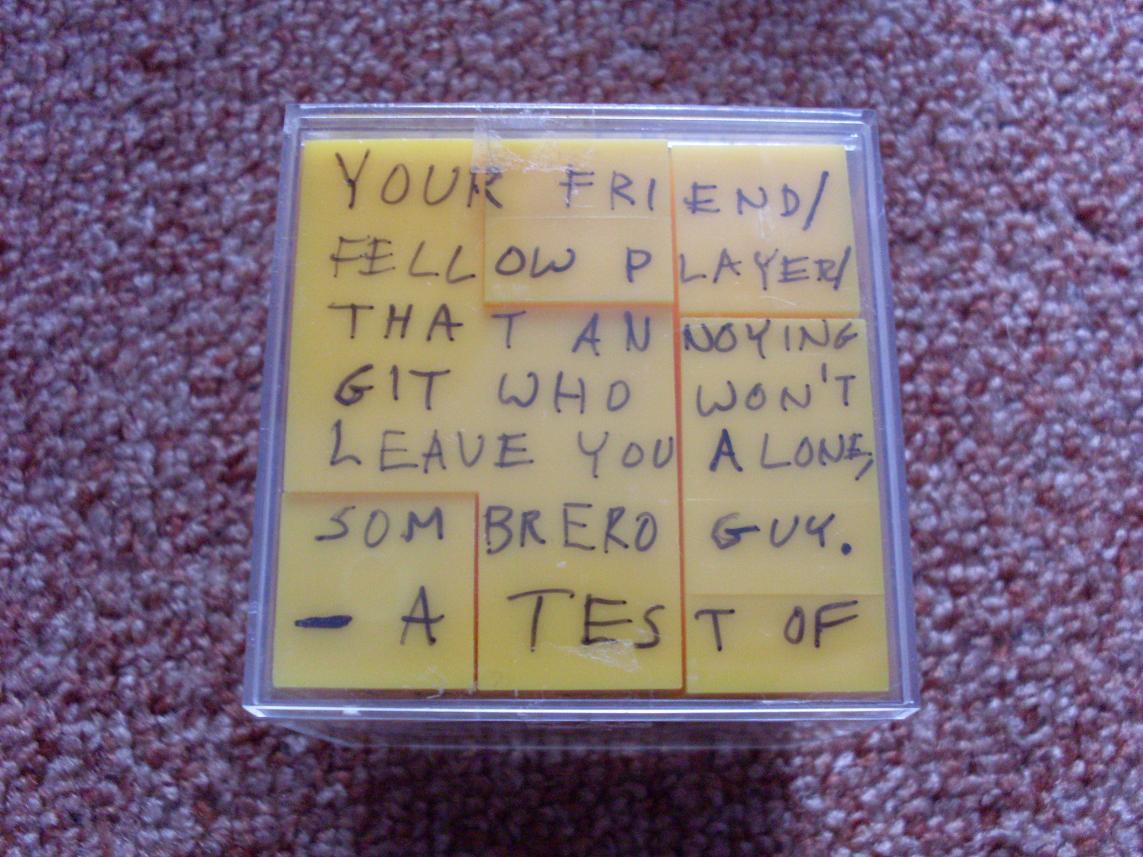 YOUR FRIEND/
FELLOW PLAYER/
THAT ANNOYING
GIT WHO WON'T
LEAVE YOU ALONE,
SOMBRERO GUY.
- A TEST OF